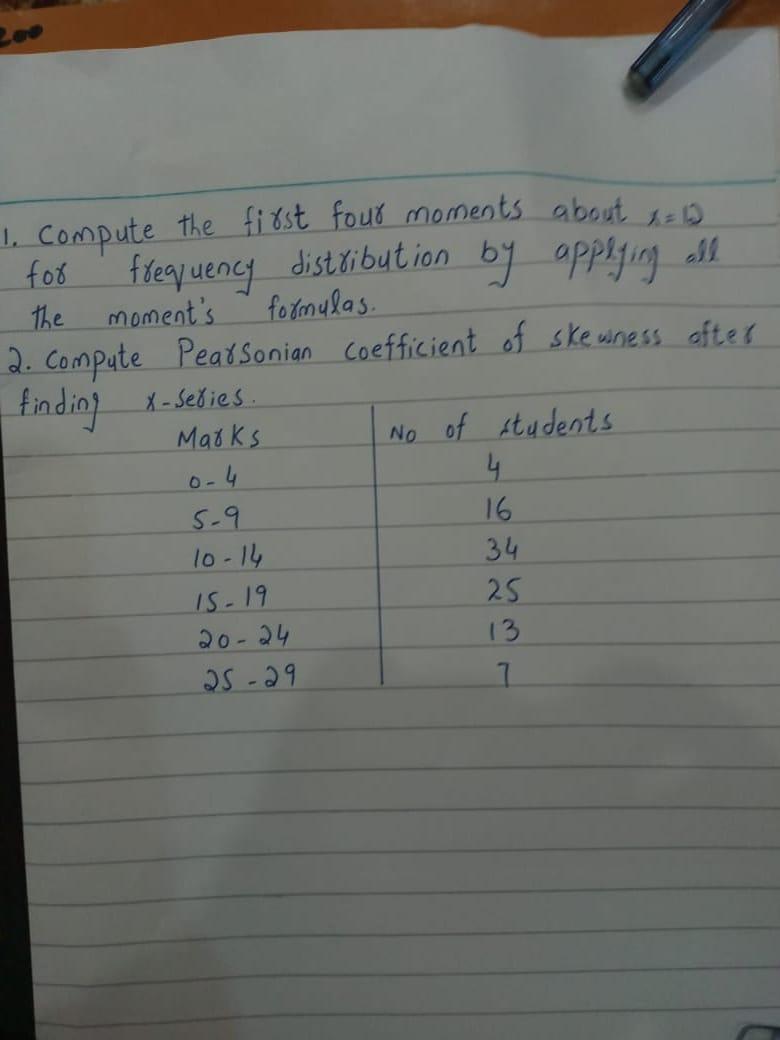 200
1. Compute the first four moments about x=12
for frequency distribution by applying all
the moment's formulas.
2. Compute Pearsonian Coefficient of skewness after
finding x-series.
Marks No of students
0-4 4
5-9 16
10-14 34
15-19 25
20-24 13
25-29 7